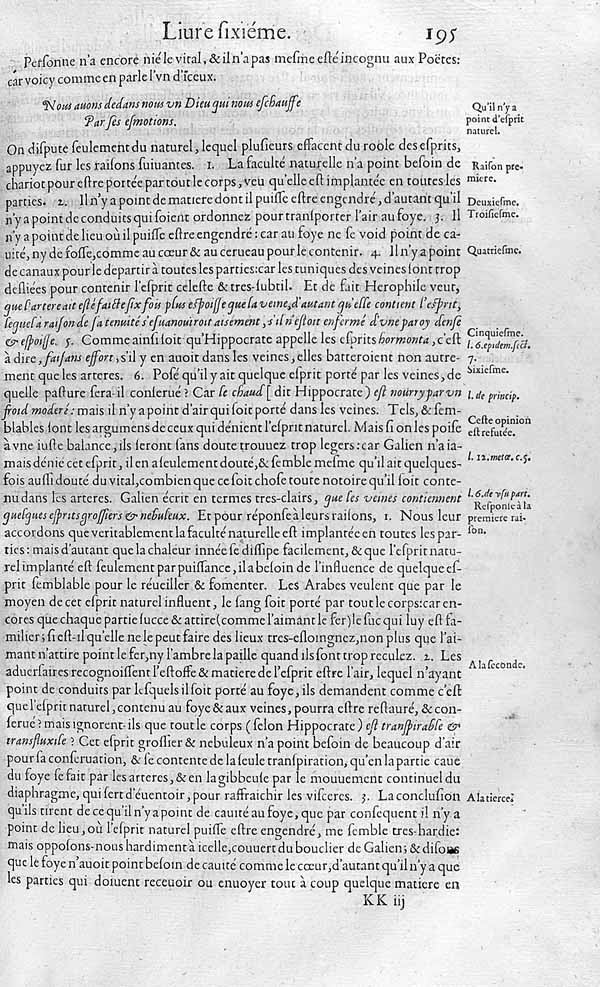 Liure ſixiéme. 195
Perſonne n'a encore nié le vital, & il n'a pas meſme eſté incognu aux Poëtes:
car voicy comme en parle l'vn d'iceux.
Nous auons dedans nous vn Dieu qui nous eſchauffe
Par ſes eſmotions.
Qu'il n'y a
point d'eſprit
naturel.
On diſpute ſeulement du naturel, lequel pluſieurs effacent du roole des eſprits,
appuyez ſur les raiſons ſuiuantes. 1. La faculté naturelle n'a point beſoin de
chariot pour eſtre portée par tout le corps, veu qu'elle eſt implantée en toutes les
parties. 2. Il n'y a point de matiere dont il puiſſe eſtre engendré, d'autant qu'il
n'y a point de conduits qui ſoient ordonnez pour tranſporter l'air au foye. 3. Il
n'y a point de lieu où il puiſſe eſtre engendré: car au foye ne ſe void point de ca-
uité, ny de foſſe, comme au cœur & au cerueau pour le contenir. 4. Il n'y a point
de canaux pour le departir à toutes les parties: car les tuniques des veines ſont trop
deſliées pour contenir l'eſprit celeſte & tres-ſubtil. Et de fait Herophile veut,
que l'artere ait eſté faicte ſix fois plus eſpoiſſe que la veine, d'autant qu'elle contient l'eſprit,
lequel a raiſon de ſa tenuité s'eſuanouiroit aisement, s'il n'eſtoit enfermé d'vne paroy denſe
& eſpoiſſe. 5. Comme ainſi ſoit qu'Hippocrate appelle les eſprits hormonta, c'eſt
à dire, faiſans effort, s'il y en auoit dans les veines, elles batteroient non autre-
ment que les arteres. 6. Poſé qu'il y ait quelque eſprit porté par les veines, de
quelle paſture ſera-il conſerué? Car le chaud [dit Hippocrate) eſt nourry par vn
froid moderé: mais il n'y a point d'air qui ſoit porté dans les veines. Tels, & ſem-
blables ſont les argumens de ceux qui dénient l'eſprit naturel. Mais ſi on les poiſe
à vne iuſte balance, ils ſeront ſans doute trouuez trop legers: car Galien n'a ia-
mais dénié cet eſprit, il en a ſeulement douté, & ſemble meſme qu'il ait quelques-
fois auſſi douté du vital, combien que ce ſoit choſe toute notoire qu'il ſoit conte-
nu dans les arteres. Galien écrit en termes tres-clairs, que les veines contiennent
quelques eſprits groſſiers & nebuleux. Et pour réponſe à leurs raiſons, 1. Nous leur
accordons que veritablement la faculté naturelle eſt implantée en toutes les par-
ties: mais d'autant que la chaleur innée ſe diſſipe facilement, & que l'eſprit natu-
rel implanté eſt ſeulement par puiſſance, il a beſoin de l'influence de quelque eſ-
prit ſemblable pour le réueiller & fomenter. Les Arabes veulent que par le
moyen de cet eſprit naturel influent, le ſang ſoit porté par tout le corps: car en-
cores que chaque partie ſucce & attire (comme l'aimant le fer) le ſuc qui luy eſt fa-
milier; ſi eſt-il qu'elle ne le peut faire des lieux tres-eſloingnez, non plus que l'ai-
mant n'attire point le fer, ny l'ambre la paille quand ils ſont trop reculez. 2. Les
aduerſaires recognoiſſent l'eſtoffe & matiere de l'eſprit eſtre l'air, lequel n'ayant
point de conduits par leſquels il ſoit porté au foye, ils demandent comme c'eſt
que l'eſprit naturel, contenu au foye & aux veines, pourra eſtre reſtauré, & con-
ſerué? mais ignorent-ils que tout le corps (ſelon Hippocrate) eſt tranſpirable &
tranſfluxile? Cet eſprit groſſier & nebuleux n'a point beſoin de beaucoup d'air
pour ſa conſeruation, & ſe contente de la ſeule tranſpiration, qu'en la partie caue
du foye ſe fait par les arteres, & en la gibbeuſe par le mouuement continuel du
diaphragme, qui ſert d'éuentoir, pour raffraichir les viſceres. 3. La concluſion
qu'ils tirent de ce qu'il n'y a point de cauité au foye, que par conſequent il n'y a
point de lieu, où l'eſprit naturel puiſſe eſtre engendré, me ſemble tres-hardie:
mais oppoſons-nous hardiment à icelle, couuert du bouclier de Galien; & diſons
que le foye n'auoit point beſoin de cauité comme le cœur, d'autant qu'il n'y a que
les parties qui doiuent receuoir ou enuoyer tout à coup quelque matiere en
KK iij
Raiſon pre-
miere.
Deuxieſme.
Troiſieſme.
Quatrieſme.
Cinquieſme.
l. 6. epidem. ſect.
7.
Sixieſme.
l. de princip.
Ceſte opinion
eſt refutée.
l. 12. metæ. c. 5.
l. 6. de vſu part.
Reſponſe à la
premiere rai-
ſon.
A la ſeconde.
A la tierce.